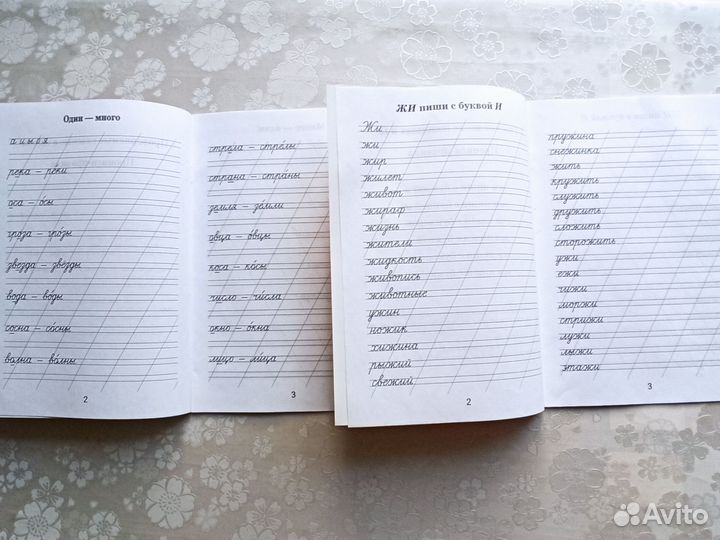 Один — много
а и ы в я
река — ре́ки
оса — о́сы
гроза — гро́зы
звезда — звёзды
вода — во́ды
сосна — со́сны
волна — во́лны
2
стрела — стре́лы
страна — стра́ны
земля — зе́мли
овца — о́вцы
коса — ко́сы
число — чи́сла
окно — о́кна
лицо — ли́ца
3
ЖИ пиши с буквой И
Жи
жи
жир
жилет
живот
жираф
жизнь
жители
жидкость
живопись
животные
ужин
ножик
хижина
рыжий
свежий
2
пружина
снежинка
жить
кружить
служить
дружить
сложить
сторожить
ужи
ежи
чижи
моржи
стрижи
лужи
лыжи
этажи
3
Avito